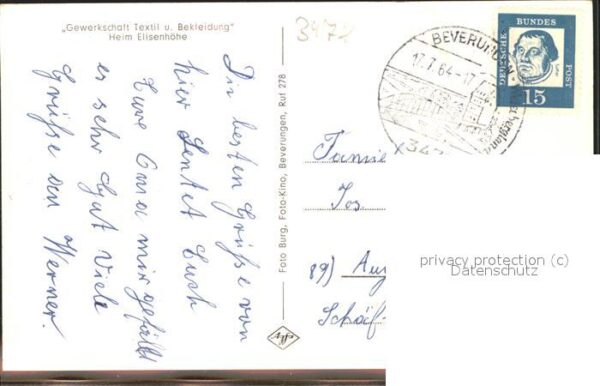 „Gewerkschaft Textil u. Bekleidung"
Heim Elisenhöhe
3472
Die besten Grüße von
hier sendet Euch
Eure Oma mir gefällt
es sehr gut Viele
Grüße an Werner.
Foto Burg, Foto-Kino, Beverungen, Ruf 278
Agfa
BEVERUNGEN
17.7.64-17
342
DEUTSCHE
BUNDES
POST
15
Famil
Jos
89) Aug
Schäf-
privacy protection (c)
Datenschutz